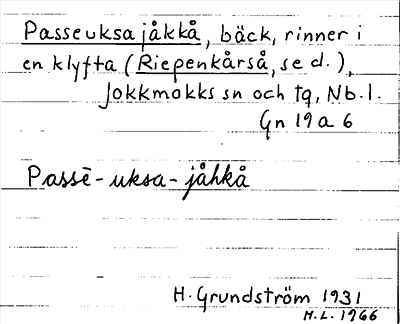 Passeuksajåkkå, bäck, rinner i
en klyfta (Riepenkårså, se d.),
Jokkmokks sn och tq, Nb.l.
Gn 19 a 6
Passē-uksa-jåhkå
H. Grundström 1931
H.L. 1966